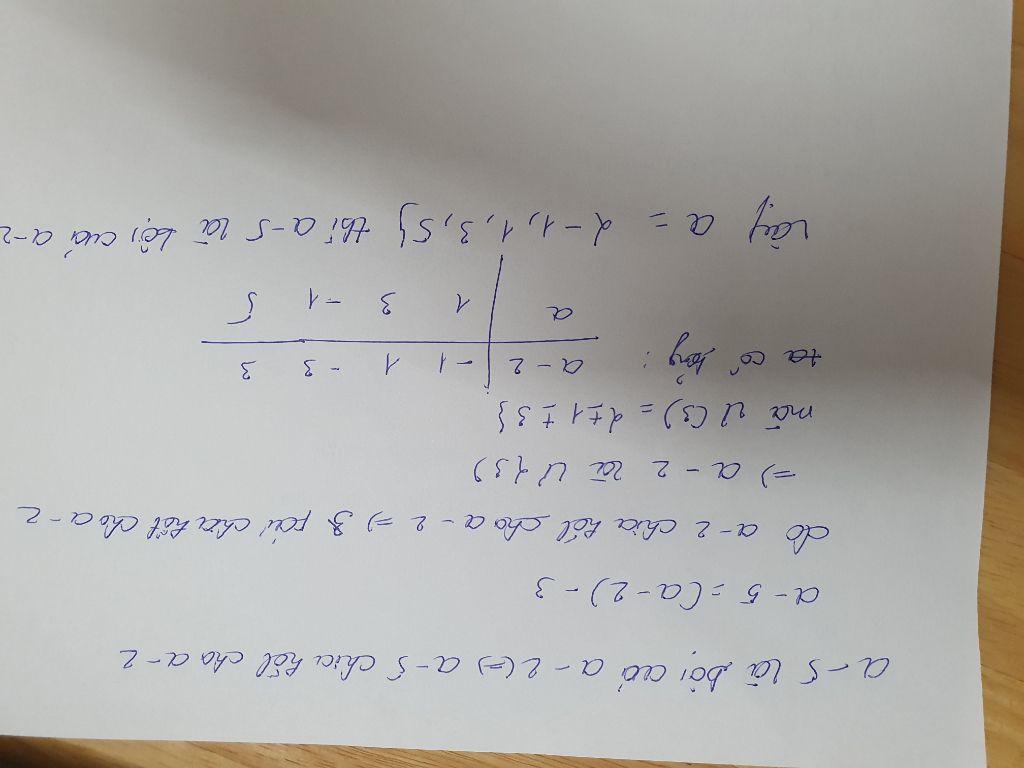 a - 5 là bội của a - 2 (=) a - 5 chia hết cho a - 2
a - 5 = (a - 2) - 3
do a - 2 chia hết cho a - 2 => 3 phải chia hết cho a - 2
=) a - 2 là Ư {3)
mà Ư(3) = {±1 ± 3}
ta có bảng:
a - 2 | -1 1 -3 3
a | 1 3 -1 5
vậy a = {-1, 1, 3, 5} thì a - 5 là bội của a - 2